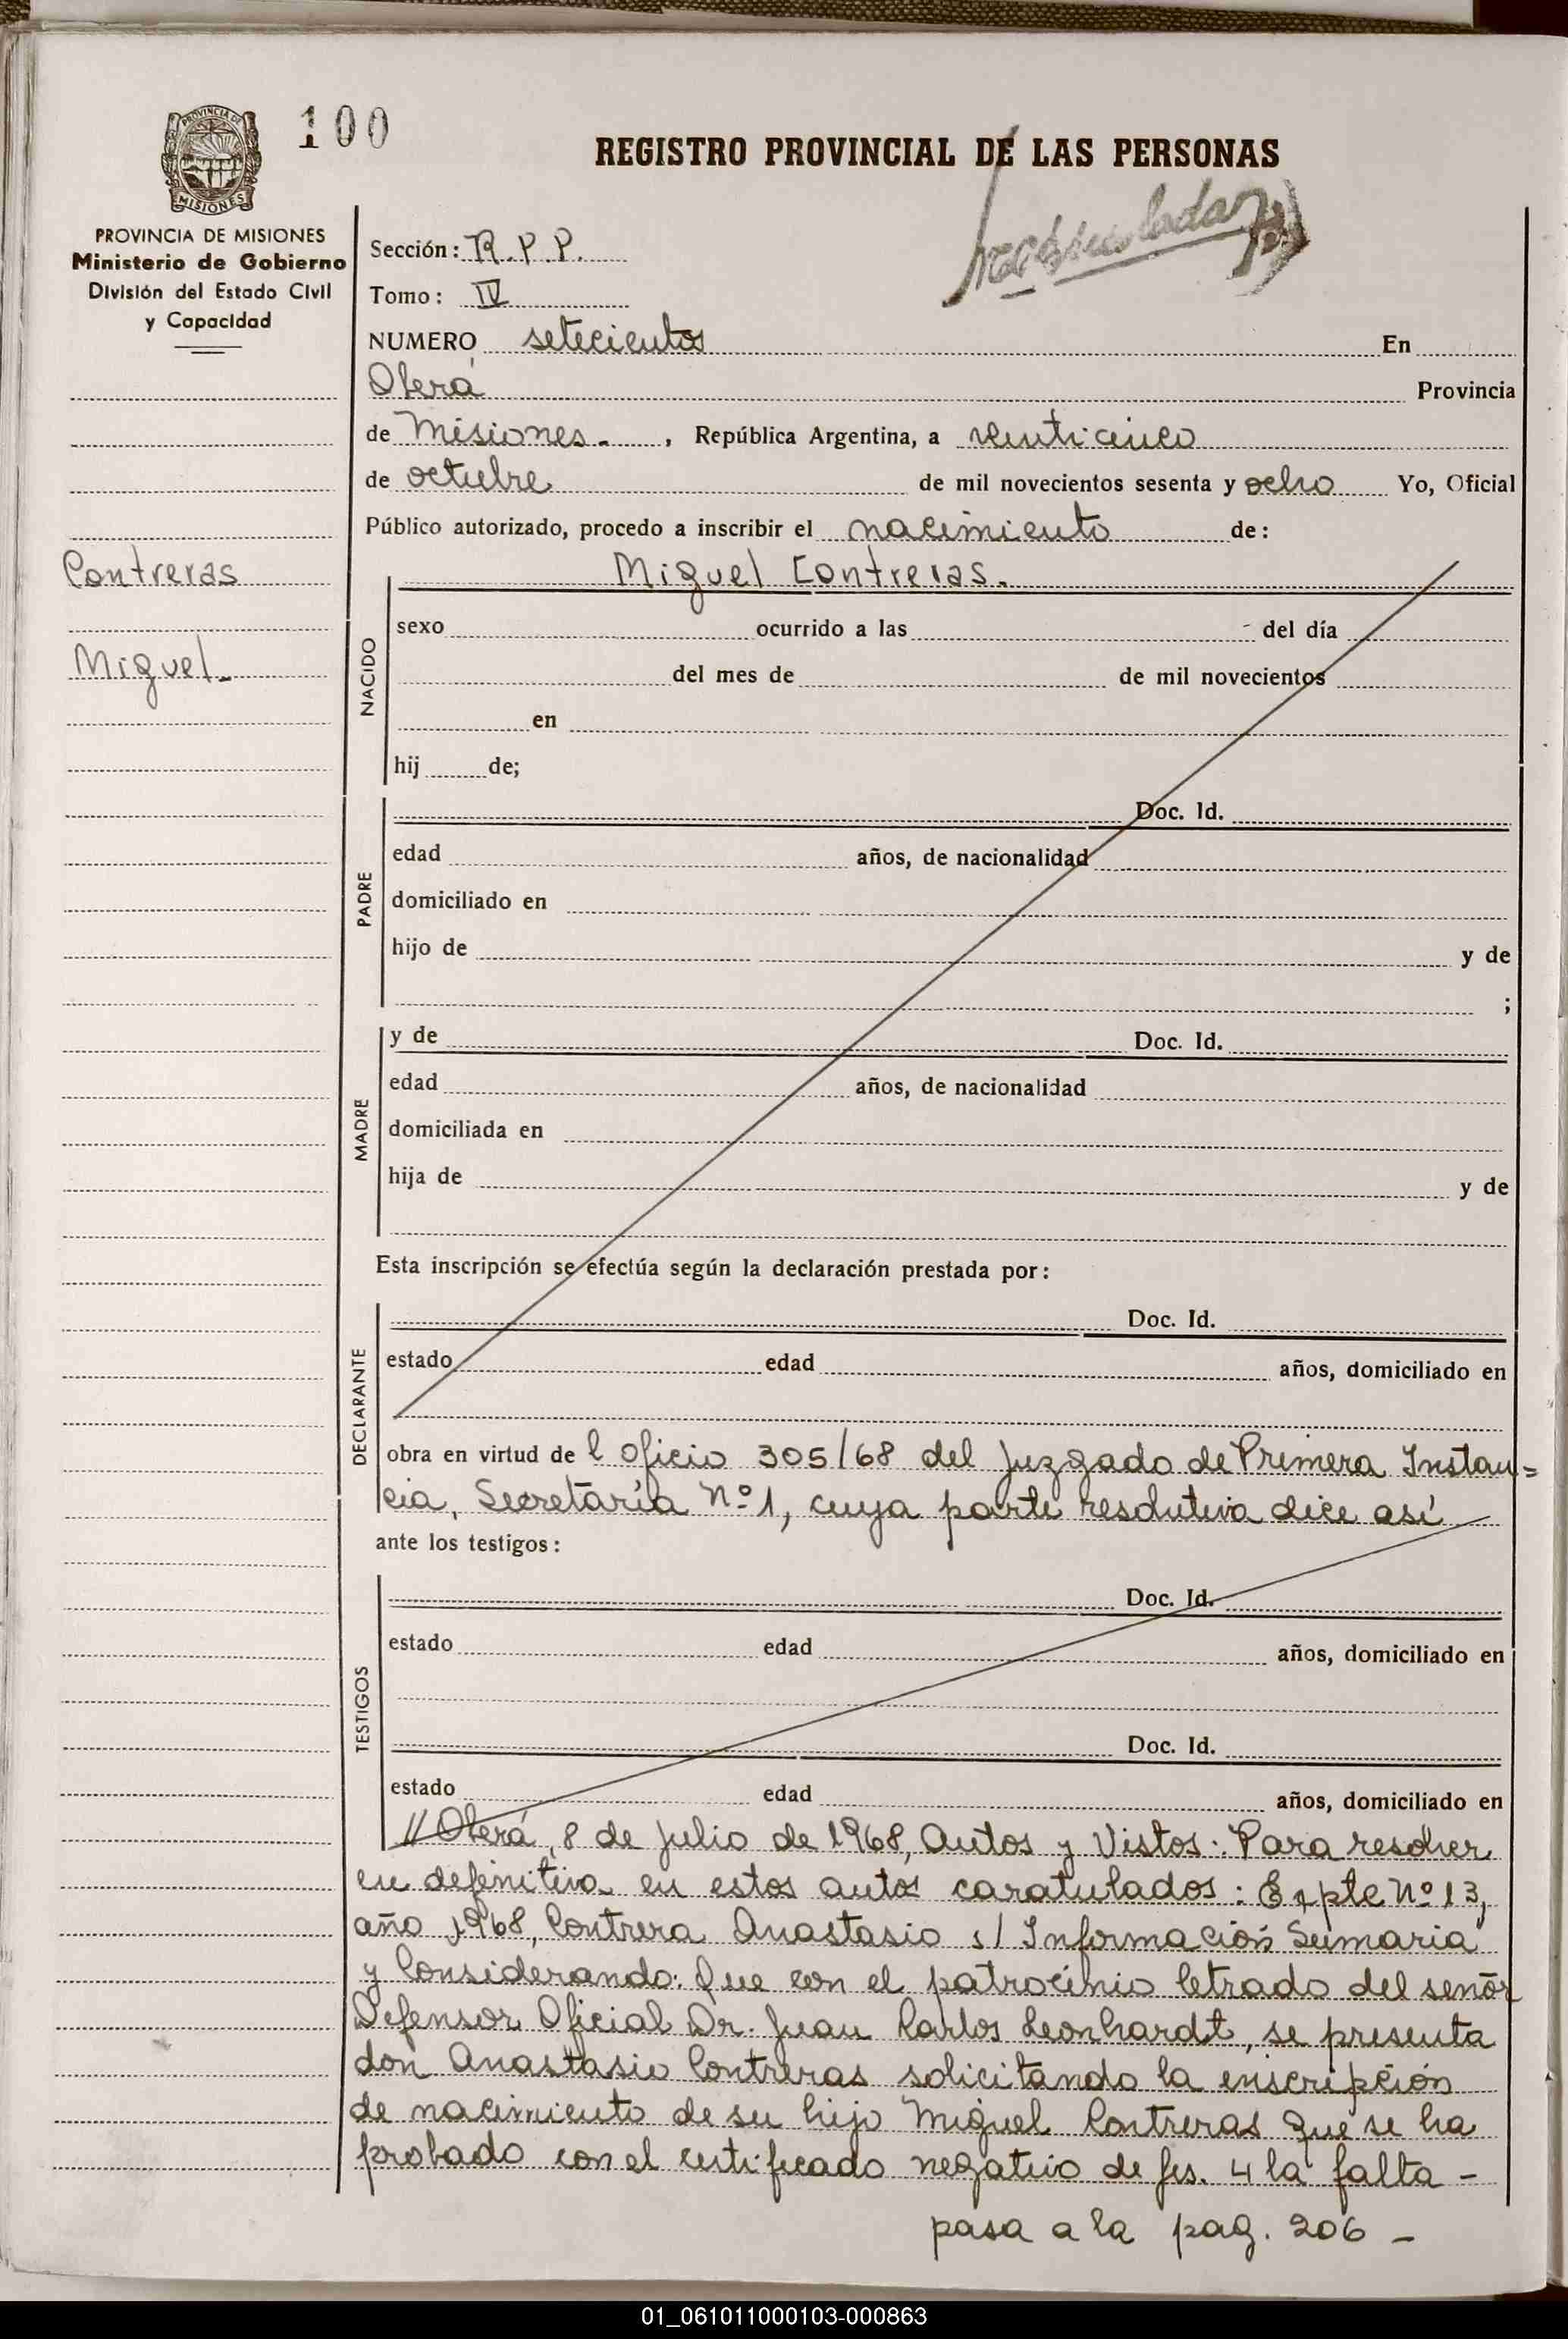 PROVINCIA DE
MISIONES
100
REGISTRO PROVINCIAL DE LAS PERSONAS
PROVINCIA DE MISIONES
Ministerio de Gobierno
División del Estado Civil
y Capacidad
Sección: R.P.P.
Tomo: IV
NUMERO setecientos En
Oberá Provincia
de Misiones. , República Argentina, a venticinco
de octubre de mil novecientos sesenta y ocho Yo, Oficial
Público autorizado, procedo a inscribir el nacimiento de:
Contreras
Miguel-
Miguel Contreras.
NACIDO
sexo ocurrido a las del día
del mes de de mil novecientos
en
hij de;
PADRE
Doc. Id.
edad años, de nacionalidad
domiciliado en
hijo de y de
;
MADRE
y de Doc. Id.
edad años, de nacionalidad
domiciliada en
hija de y de
Esta inscripción se efectúa según la declaración prestada por:
DECLARANTE
Doc. Id.
estado edad años, domiciliado en
obra en virtud de l Oficio 305/68 del Juzgado de Primera Instan=
cia, Secretaría Nº 1, cuya parte resolutiva dice así
ante los testigos:
TESTIGOS
Doc. Id.
estado edad años, domiciliado en
Doc. Id.
estado edad años, domiciliado en
//Oberá, 8 de Julio de 1968, Autos y Vistos: Para resolver
en definitiva en estos autos caratulados: Expte Nº 13,
año 1968, Contrera Anastasio s/ Información Sumaria
y Considerando: Que con el patrocinio letrado del señor
Defensor Oficial Dr. Juan Carlos Leonhardt, se presenta
don Anastasio Contreras solicitando la inscripción
de nacimiento de su hijo Miguel Contreras que se ha
probado con el certificado negativo de fs. 4 la falta -
pasa a la pag. 206 -
01_061011000103-000863